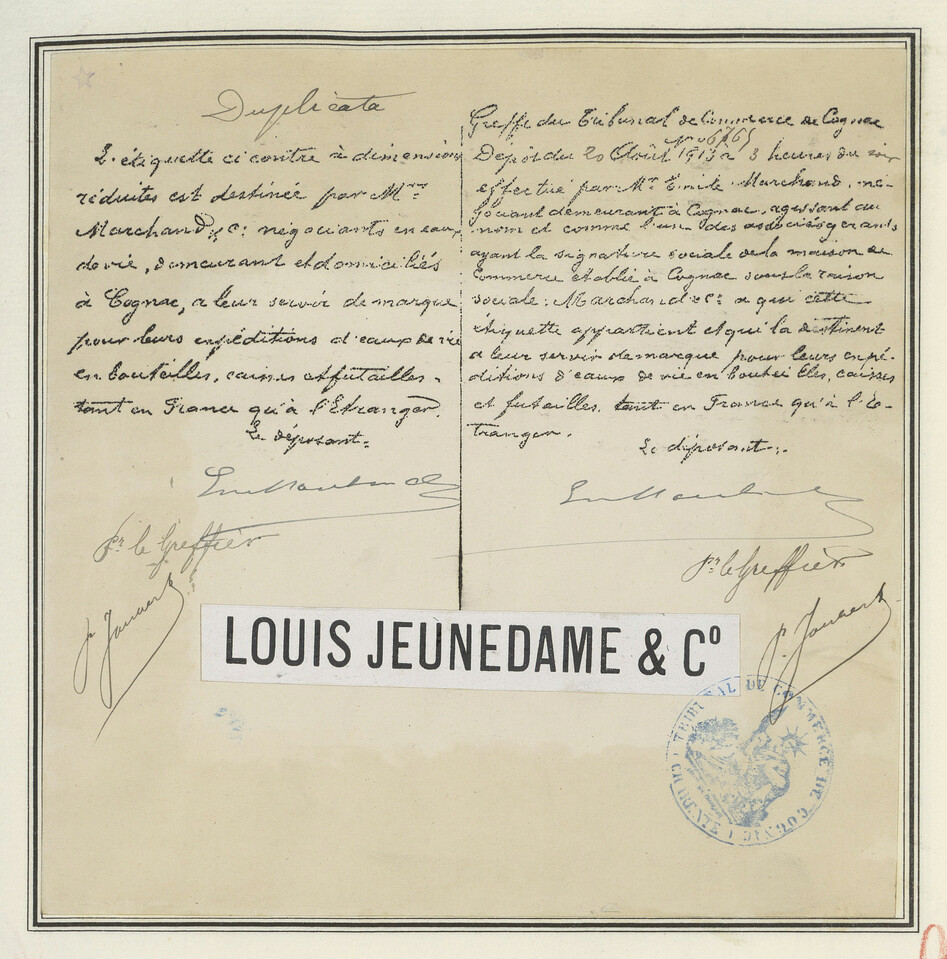 Duplicata
L'étiquette ci contre à dimensions
réduites est destinée par Mrs
Marchand & Cie négociants en eaux
de vie, demeurant et domiciliés
à Cognac, a leur servir de marque
pour leurs expéditions d'eaux de vie
en bouteilles, caisses et futailles.
tant en France qu'à l'Etranger.
Le déposant:
Pr le Greffier
Greffe du Tribunal de Commerce de Cognac
Dépôt du 20 Août 1913 à 3 heures du soir
effectué par Mr Emile Marchand, né-
gociant demeurant à Cognac, agissant au
nom et comme l'un des associés gérants
ayant la signature sociale de la maison de
Commerce établie à Cognac sous la raison
sociale: Marchand & Cie a qui cette
étiquette appartient et qui la destinent
a leur servir de marque pour leurs expé-
ditions d'eaux de vie en bouteilles, caisses
et futailles, tant en France qu'à l'é-
tranger.
Le déposant:
Pr le Greffier
LOUIS JEUNEDAME & Cº
TRIBUNAL DE COMMERCE DE COGNAC